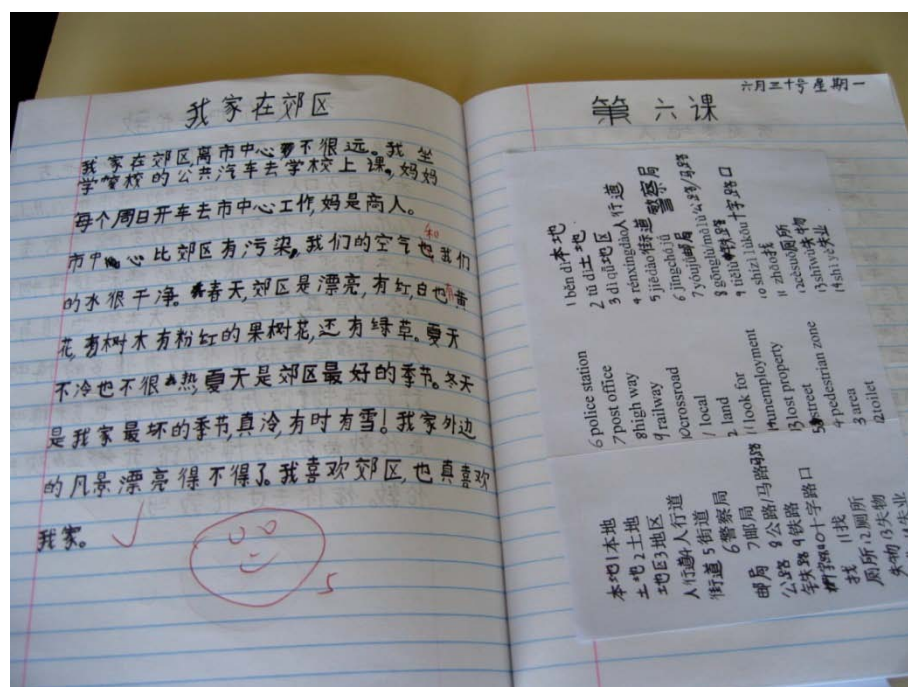 我家在郊区
我家在郊区,离市中心不很远。我坐
学校的公共汽车去学校上课。妈妈
每个周日开车去市中心工作,妈是商人。
市中心比郊区有污染。我们的空气也和我们
的水很干净。春天,郊区是漂亮,有红,白也有黄
花,有树木有粉红的果树花,还有绿草。夏天
不冷也不很热,夏天是郊区最好的季节。冬天
是我家最坏的季节,真冷,有时有雪!我家外边
的风景漂亮得不得了。我喜欢郊区,也真喜欢
我家。
5
六月三十号星期一
第六课
1 běn dì 本地
2 tǔ dì 土地
3 dì qū 地区
4 rénxíngdào 人行道
5 jiēdào 街道
6 jǐngchájú 警察局
7 yóujú 邮局
8 gōnglù/mǎlù 公路/马路
9 tiělù 铁路
10 shízì lùkǒu 十字路口
11 zhǎo 找
12 cèsuǒ 厕所
13 shīwù 失物
14 shīyè 失业
6 police station
7 post office
8 high way
9 railway
10 crossroad
1 local
2 land
11 look for
14 unemployment
13 lost property
5 street
4 pedestrian zone
3 area
12 toilet
本地 1 本地
土地 2 土地
地区 3 地区
人行道 4 人行道
街道 5 街道
6 警察局
邮局 7 邮局
公路 8 公路/马路 马路
铁路 9 铁路
10 十字路口
11 找
找
厕所 12 厕所
失物 13 失物
14 失业